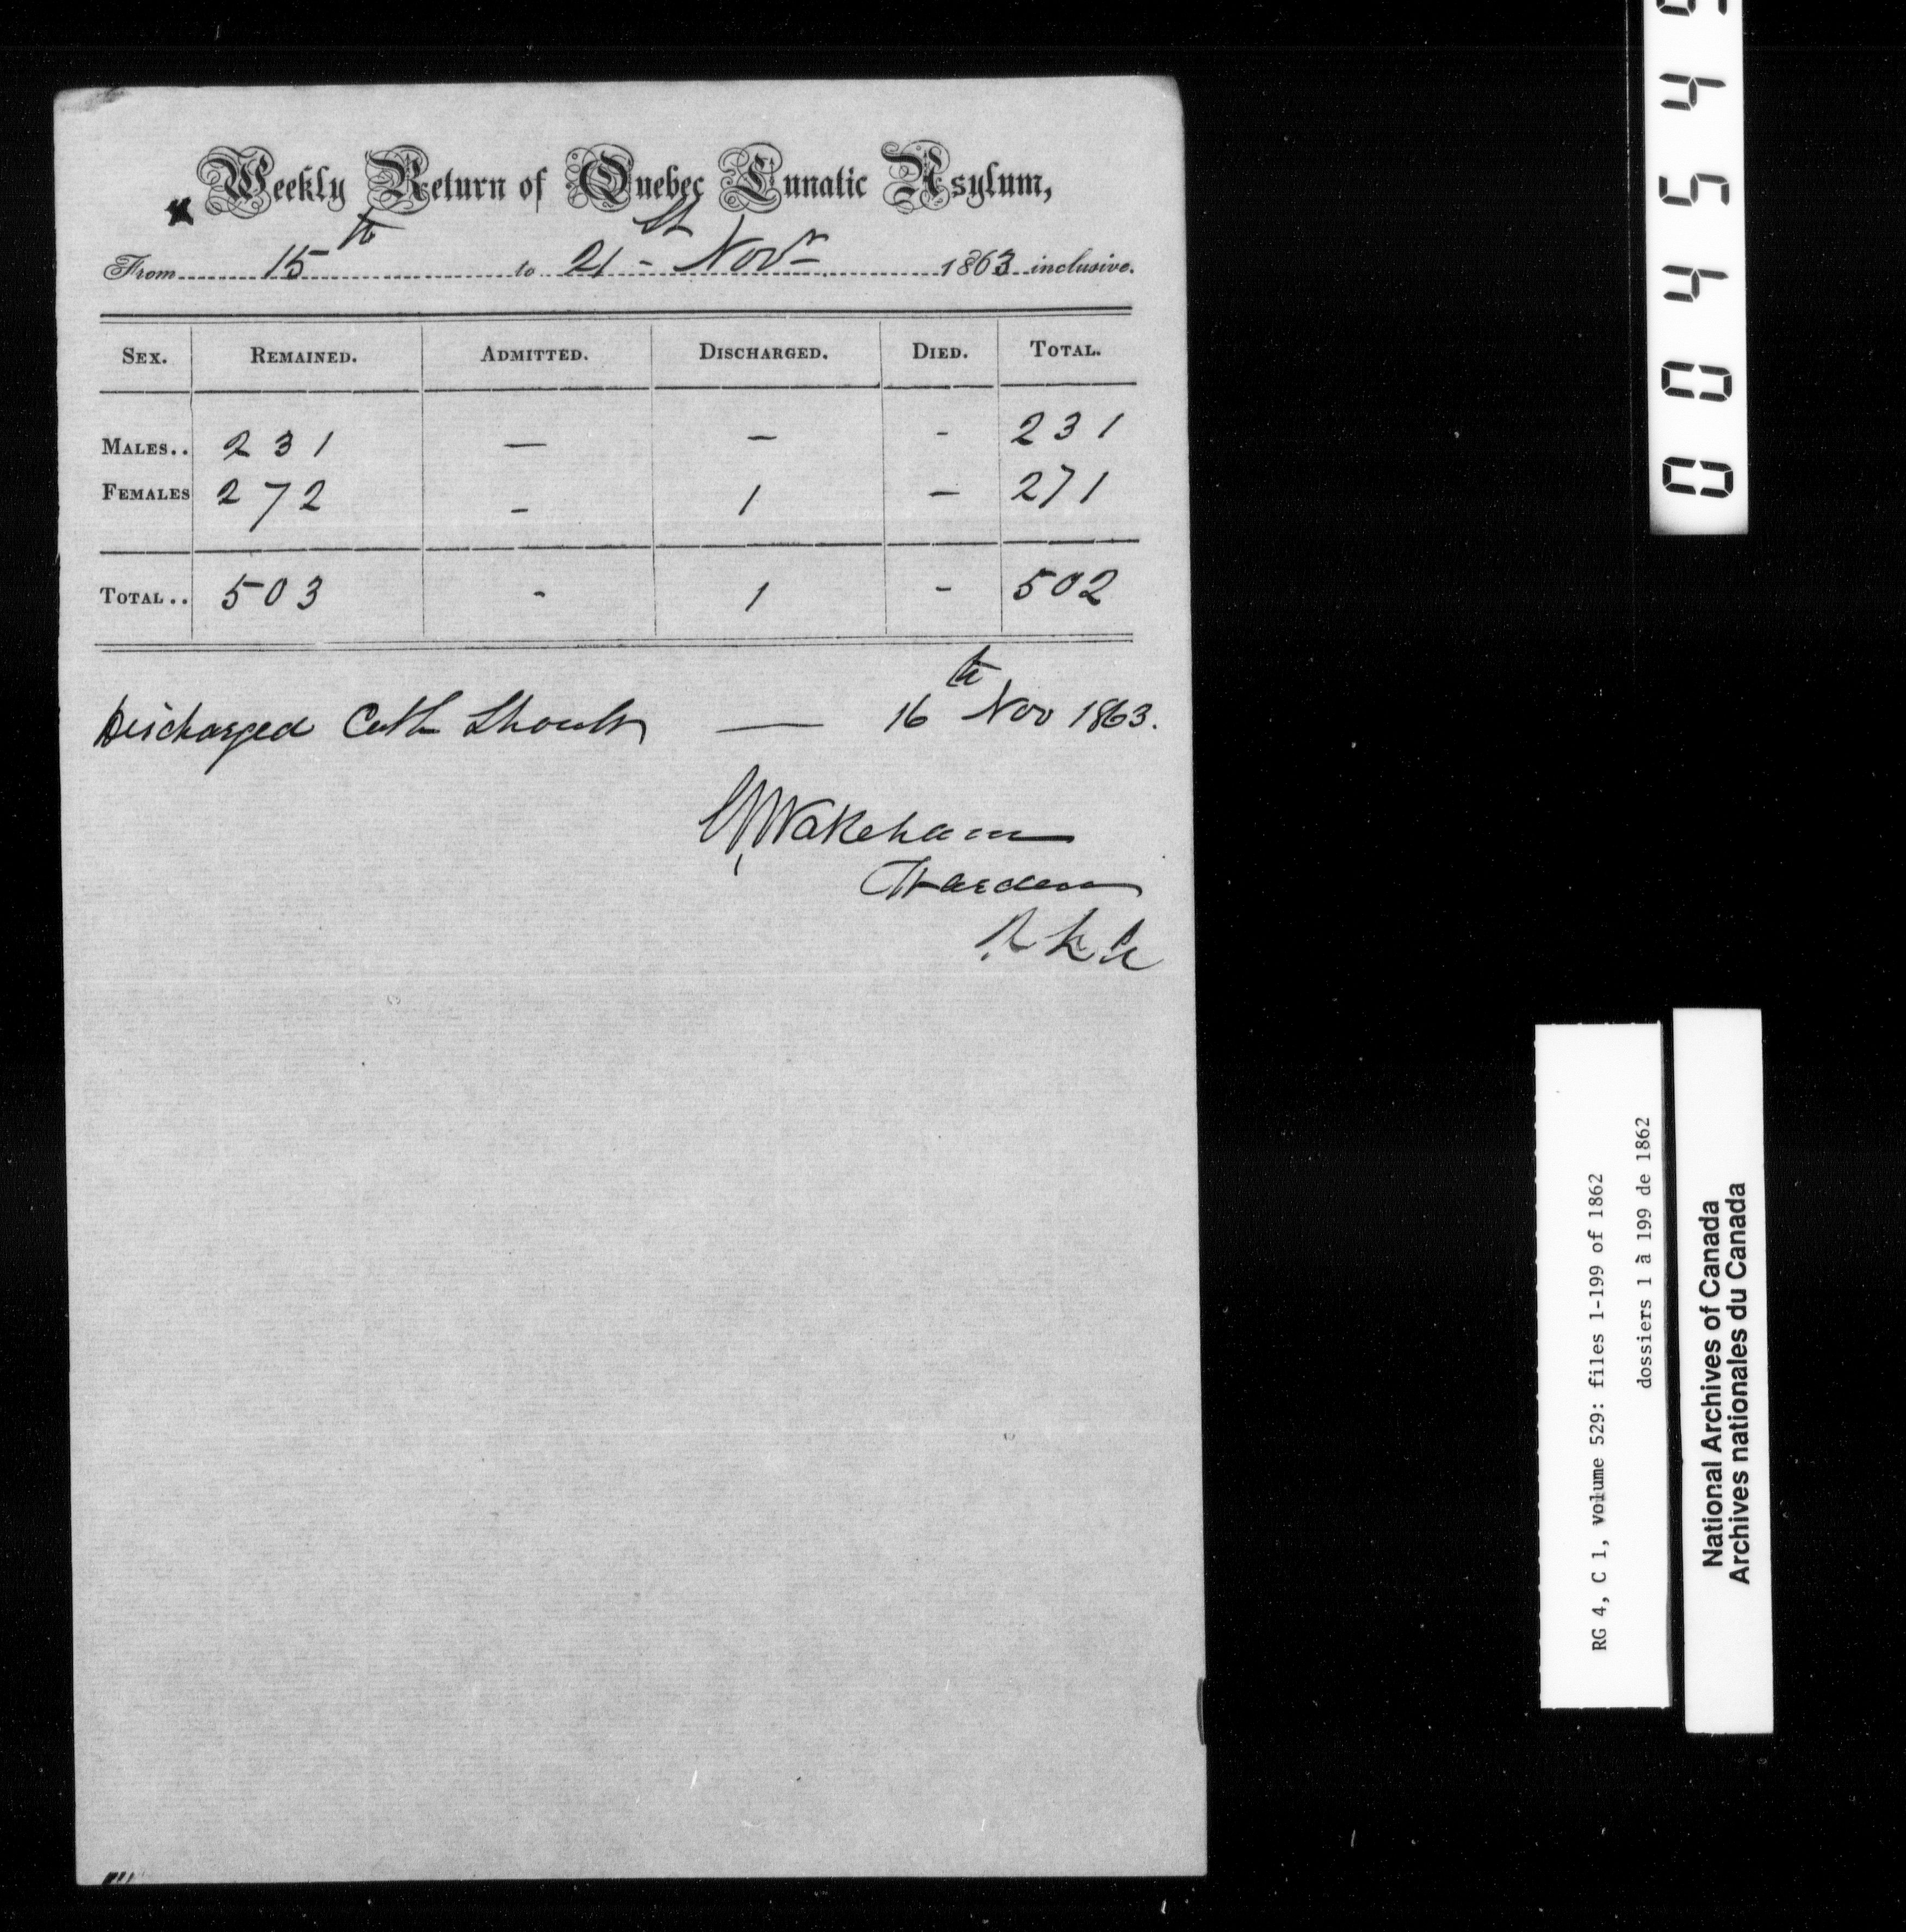 Weekly Return of Quebec Lunatic Asylum,
From 15th to 21st - Novr 1863 inclusive.
SEX. REMAINED. ADMITTED. DISCHARGED. DIED. TOTAL.
MALES.. 231 — — - 231
FEMALES 272 - 1 — 271
TOTAL.. 503 - 1 - 502
Discharged Cath — 16th Nov 1863.
Wakeham
Warden
004549
RG 4, C 1, volume 529: files 1-199 of 1862
dossiers 1 à 199 de 1862
National Archives of Canada
Archives nationales du Canada